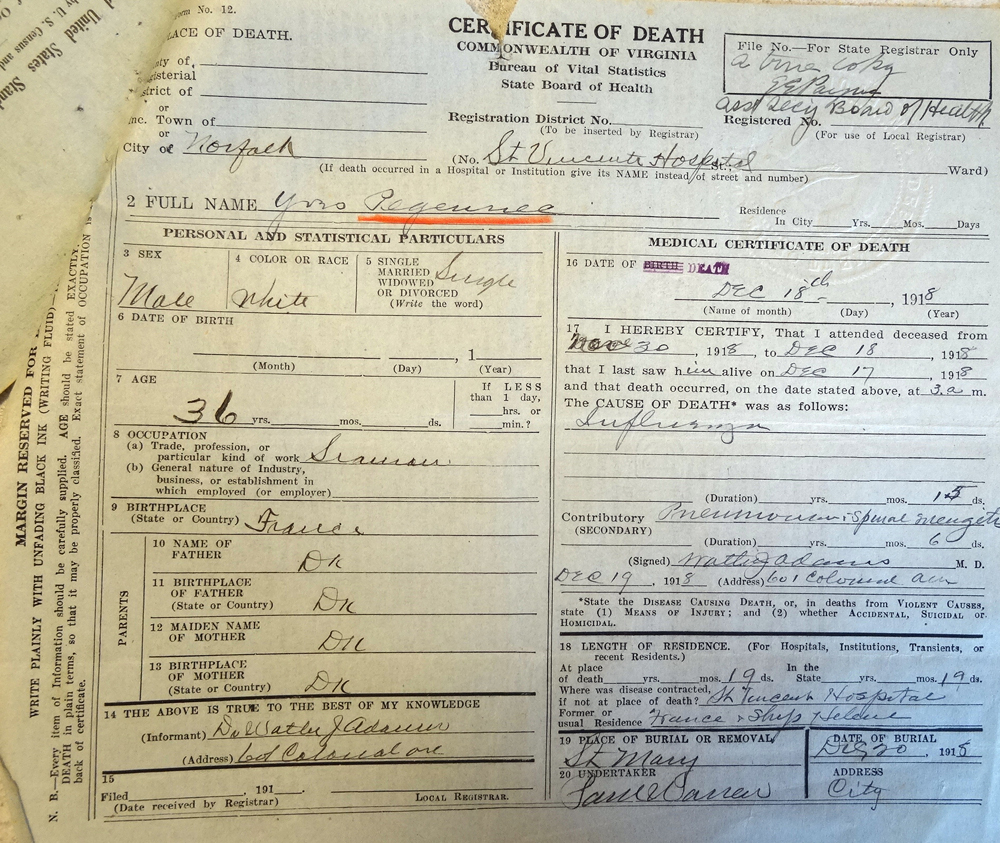 United States Stand
by U. S. Census and
Form No. 12.
LACE OF DEATH.
nty of
gisterial
strict of
or
nc. Town of
or
City of Norfolk
CERTIFICATE OF DEATH
COMMONWEALTH OF VIRGINIA
Bureau of Vital Statistics
State Board of Health
Registration District No.
(To be inserted by Registrar)
(No. St Vincents Hospital St.; Ward)
(If death occurred in a Hospital or Institution give its NAME instead of street and number)
File No.—For State Registrar Only
a true copy
Asst Secy Board of Health
Registered No.
(For use of Local Registrar)
2 FULL NAME Yves
Residence
In City Yrs. Mos. Days
PERSONAL AND STATISTICAL PARTICULARS
3 SEX
Male
4 COLOR OR RACE
White
5 SINGLE
MARRIED
WIDOWED
OR DIVORCED
(Write the word)
Single
6 DATE OF BIRTH
, 1
(Month) (Day) (Year)
7 AGE
36 yrs. mos. ds.
If LESS
than 1 day,
hrs. or
min.?
8 OCCUPATION
(a) Trade, profession, or
particular kind of work Seaman
(b) General nature of Industry,
business, or establishment in
which employed (or employer)
9 BIRTHPLACE
(State or Country) France
PARENTS
10 NAME OF
FATHER DK
11 BIRTHPLACE
OF FATHER
(State or Country) DK
12 MAIDEN NAME
OF MOTHER DK
13 BIRTHPLACE
OF MOTHER
(State or Country) DK
14 THE ABOVE IS TRUE TO THE BEST OF MY KNOWLEDGE
(Informant) Dr Walter J Adams
(Address) 601 Colonial ave
15
Filed , 191
(Date received by Registrar) LOCAL REGISTRAR.
MEDICAL CERTIFICATE OF DEATH
16 DATE OF BIRTH DEATH
DEC 18th , 1918
(Name of month) (Day) (Year)
17 I HEREBY CERTIFY, That I attended deceased from
30 , 1918, to DEC 18 , 1918
that I last saw him alive on DEC 17 , 1918
and that death occurred, on the date stated above, at 3.a m.
The CAUSE OF DEATH* was as follows:
Influenza
(Duration) yrs. mos. 15 ds.
Contributory Pneumonia + Spinal
(SECONDARY)
(Duration) yrs. mos. 6 ds.
(Signed) Walter J Adams M. D.
DEC 19 , 1918 (Address) 601 Colonial Ave
*State the DISEASE CAUSING DEATH, or, in deaths from VIOLENT CAUSES,
state (1) MEANS OF INJURY; and (2) whether ACCIDENTAL, SUICIDAL or
HOMICIDAL.
18 LENGTH OF RESIDENCE. (For Hospitals, Institutions, Transients, or
recent Residents.)
At place
of death yrs. mos. 19 ds.
In the
State yrs. mos. 19 ds.
Where was disease contracted,
if not at place of death? St Vincent Hospital
Former or
usual Residence France + Ship Helene
19 PLACE OF BURIAL OR REMOVAL
St Mary
DATE OF BURIAL
Dec 20 , 1918
20 UNDERTAKER
ADDRESS
City
MARGIN RESERVED FOR
WRITE PLAINLY WITH UNFADING BLACK INK (WRITING FLUID)
N. B.—Every item of Information should be carefully supplied. AGE should be stated EXACTLY.
DEATH in plain terms, so that it may be properly classified. Exact statement of OCCUPATION is
back of certificate.